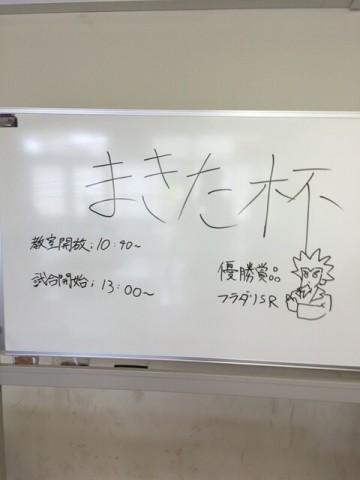 まきた杯
教室開放;10:40~
試合開始;13:00~
優勝賞品
フラダリSR